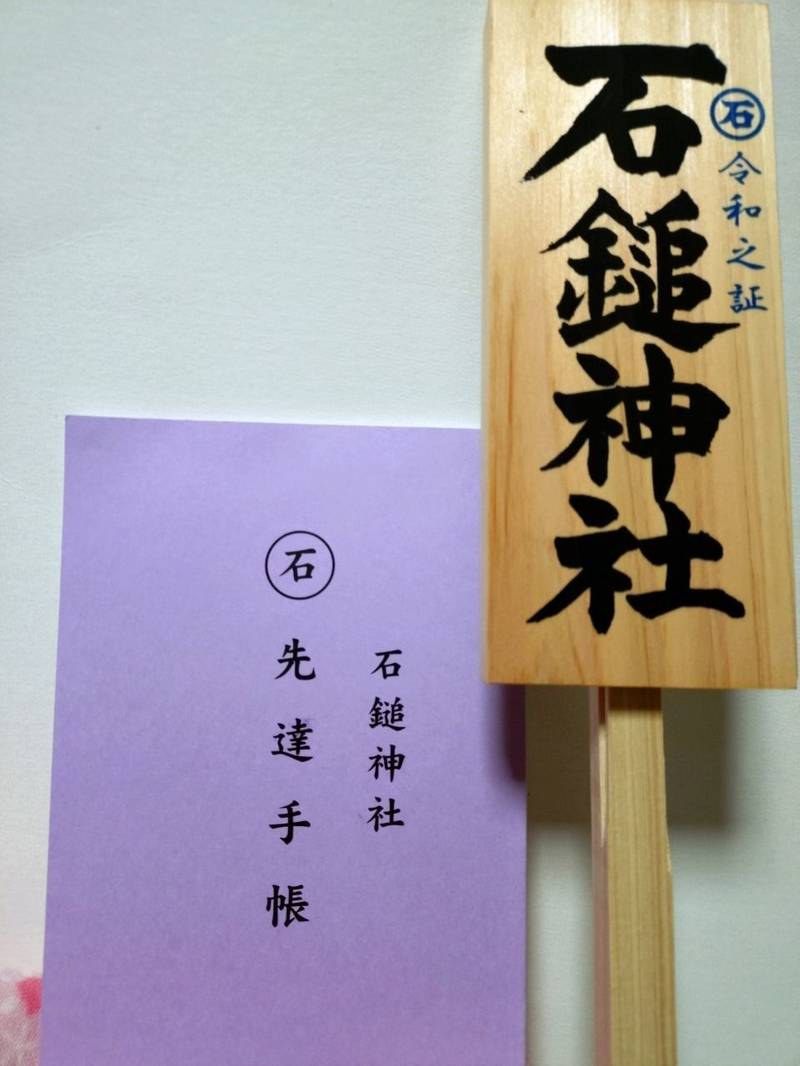 ㊩石
令和之証
石鎚神社
石鎚神社
石
先達手帳